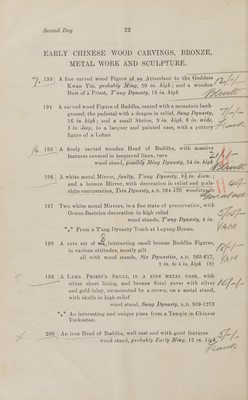 Second Day 22
EARLY CHINESE WOOD CARVINGS, BRONZE,
METAL WORK AND SCULPTURE.
193 A fine carved wood Figure of an Attendant to the Goddess
Kwan Yin, probably Ming, 29 in. high; and a wooden
Bust of a Priest, T'ang Dynasty, 15 in. high
194 A carved wood Figure of Buddha, seated with a mountain back-
ground, the pedestal with a dragon in relief, Sung Dynasty,
16 in. high; and a small Shrine, 9 in. high, 6 in. wide,
3 in. deep, in a lacquer and painted case, with a pottery
figure of a Lohan
195 A finely carved wooden Head of Buddha, with massive
features covered in lacquered linen, rare
wood stand, possibly Ming Dynasty, 24 in. high
196 A white metal Mirror, faulty, T'ang Dynasty, in. diam.;
and a bronze Mirror, with decoration in relief and
Dynasty, A.D.
197 Two white metal Mirrors, in a fine state of preservation, with
Græco-Bactrian decoration in high relief
wood stands, T'ang Dynasty, 4 in.
*** From a T'ang Dynasty Tomb at Loyang Honan
198 A rare set of 8 interesting small bronze Buddha Figures,
in various attitudes, mostly gilt
all with wood stands, Six Dynasties, A.D. 265-617,
2 in. to 4 in. high (8)
199 A LAMA PRIEST'S SKULL, IN A FINE METAL CASE, with
silver sheet lining, and bronze floral cover with silver
and gold inlay, surmounted by a crown, on a metal stand,
with skulls in high relief
wood stand, Sung Dynasty, A.D. 959-1273
*** An interesting and unique piece from a Temple in Chinese
Turkestan.
200 An iron Head of Buddha, well cast and with good features
wood stand, probably Early Ming, 12 in. high